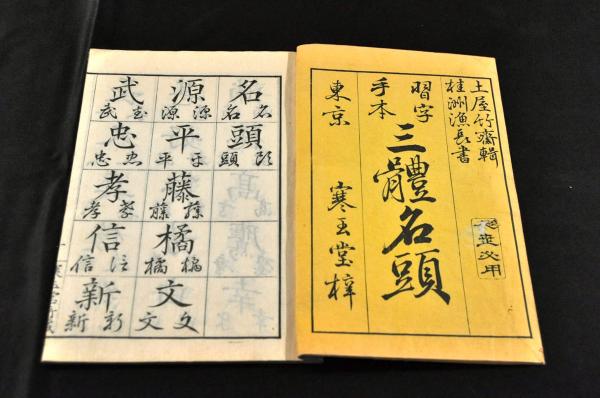 土屋竹齋輯
桂洲漁長書
習字
手本
三體名頭
東京 寒玉堂梓
名
名 名
頭
頭 頭
源
源 源
平
平 平
藤
藤 藤
橘
橘 橘
文
文 文
武
武 武
忠
忠 忠
孝
孝 孝
信
信 信
新
新 新